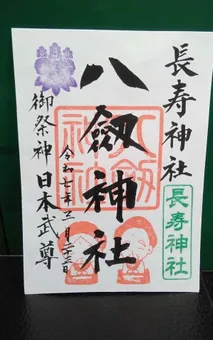 長寿神社
八劔神社
令和七年三月二十三日
御祭神 日本武尊
長寿神社